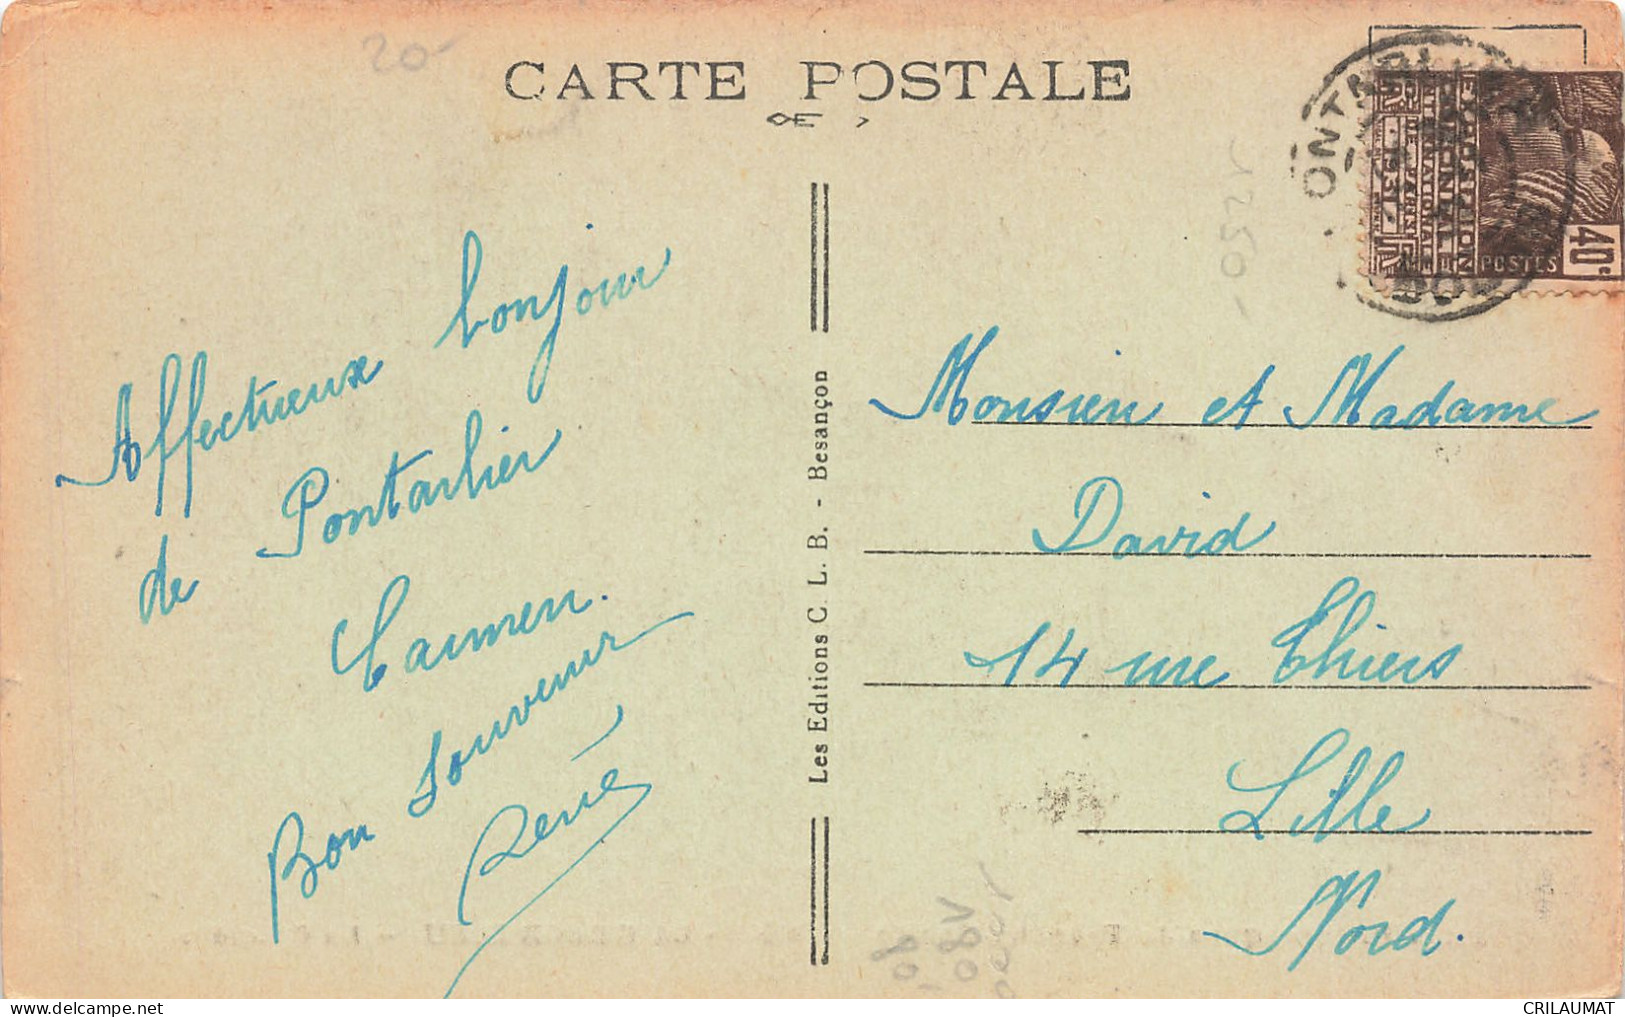 20-
CARTE POSTALE
Affectueux bonjour
de Pontarlier
Carmen.
Bon Souvenir
René
Les Editions C. L. B. - Besançon
ONTARLI
DOU
EXPOSITION
COLONIALE
INTERNATIONALE
DE PARIS
1931
POSTES
40c
Monsieur et Madame
David
14 rue Thiers
Lille
Nord.
delcampe.net
CRILAUMAT